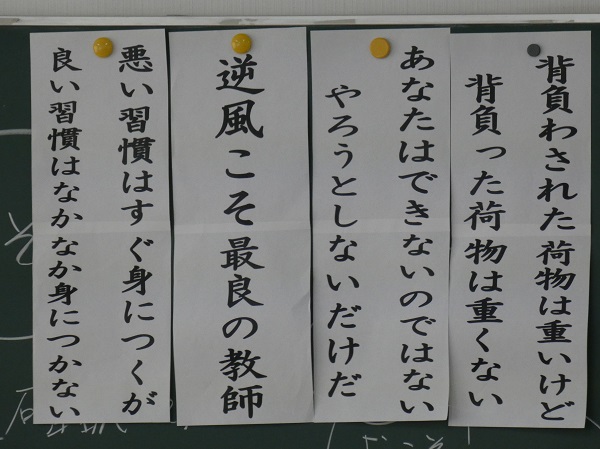 背負わされた荷物は重いけど
背負った荷物は重くない
あなたはできないのではない
やろうとしないだけだ
逆風こそ最良の教師
悪い習慣はすぐ身につくが
良い習慣はなかなか身につかない